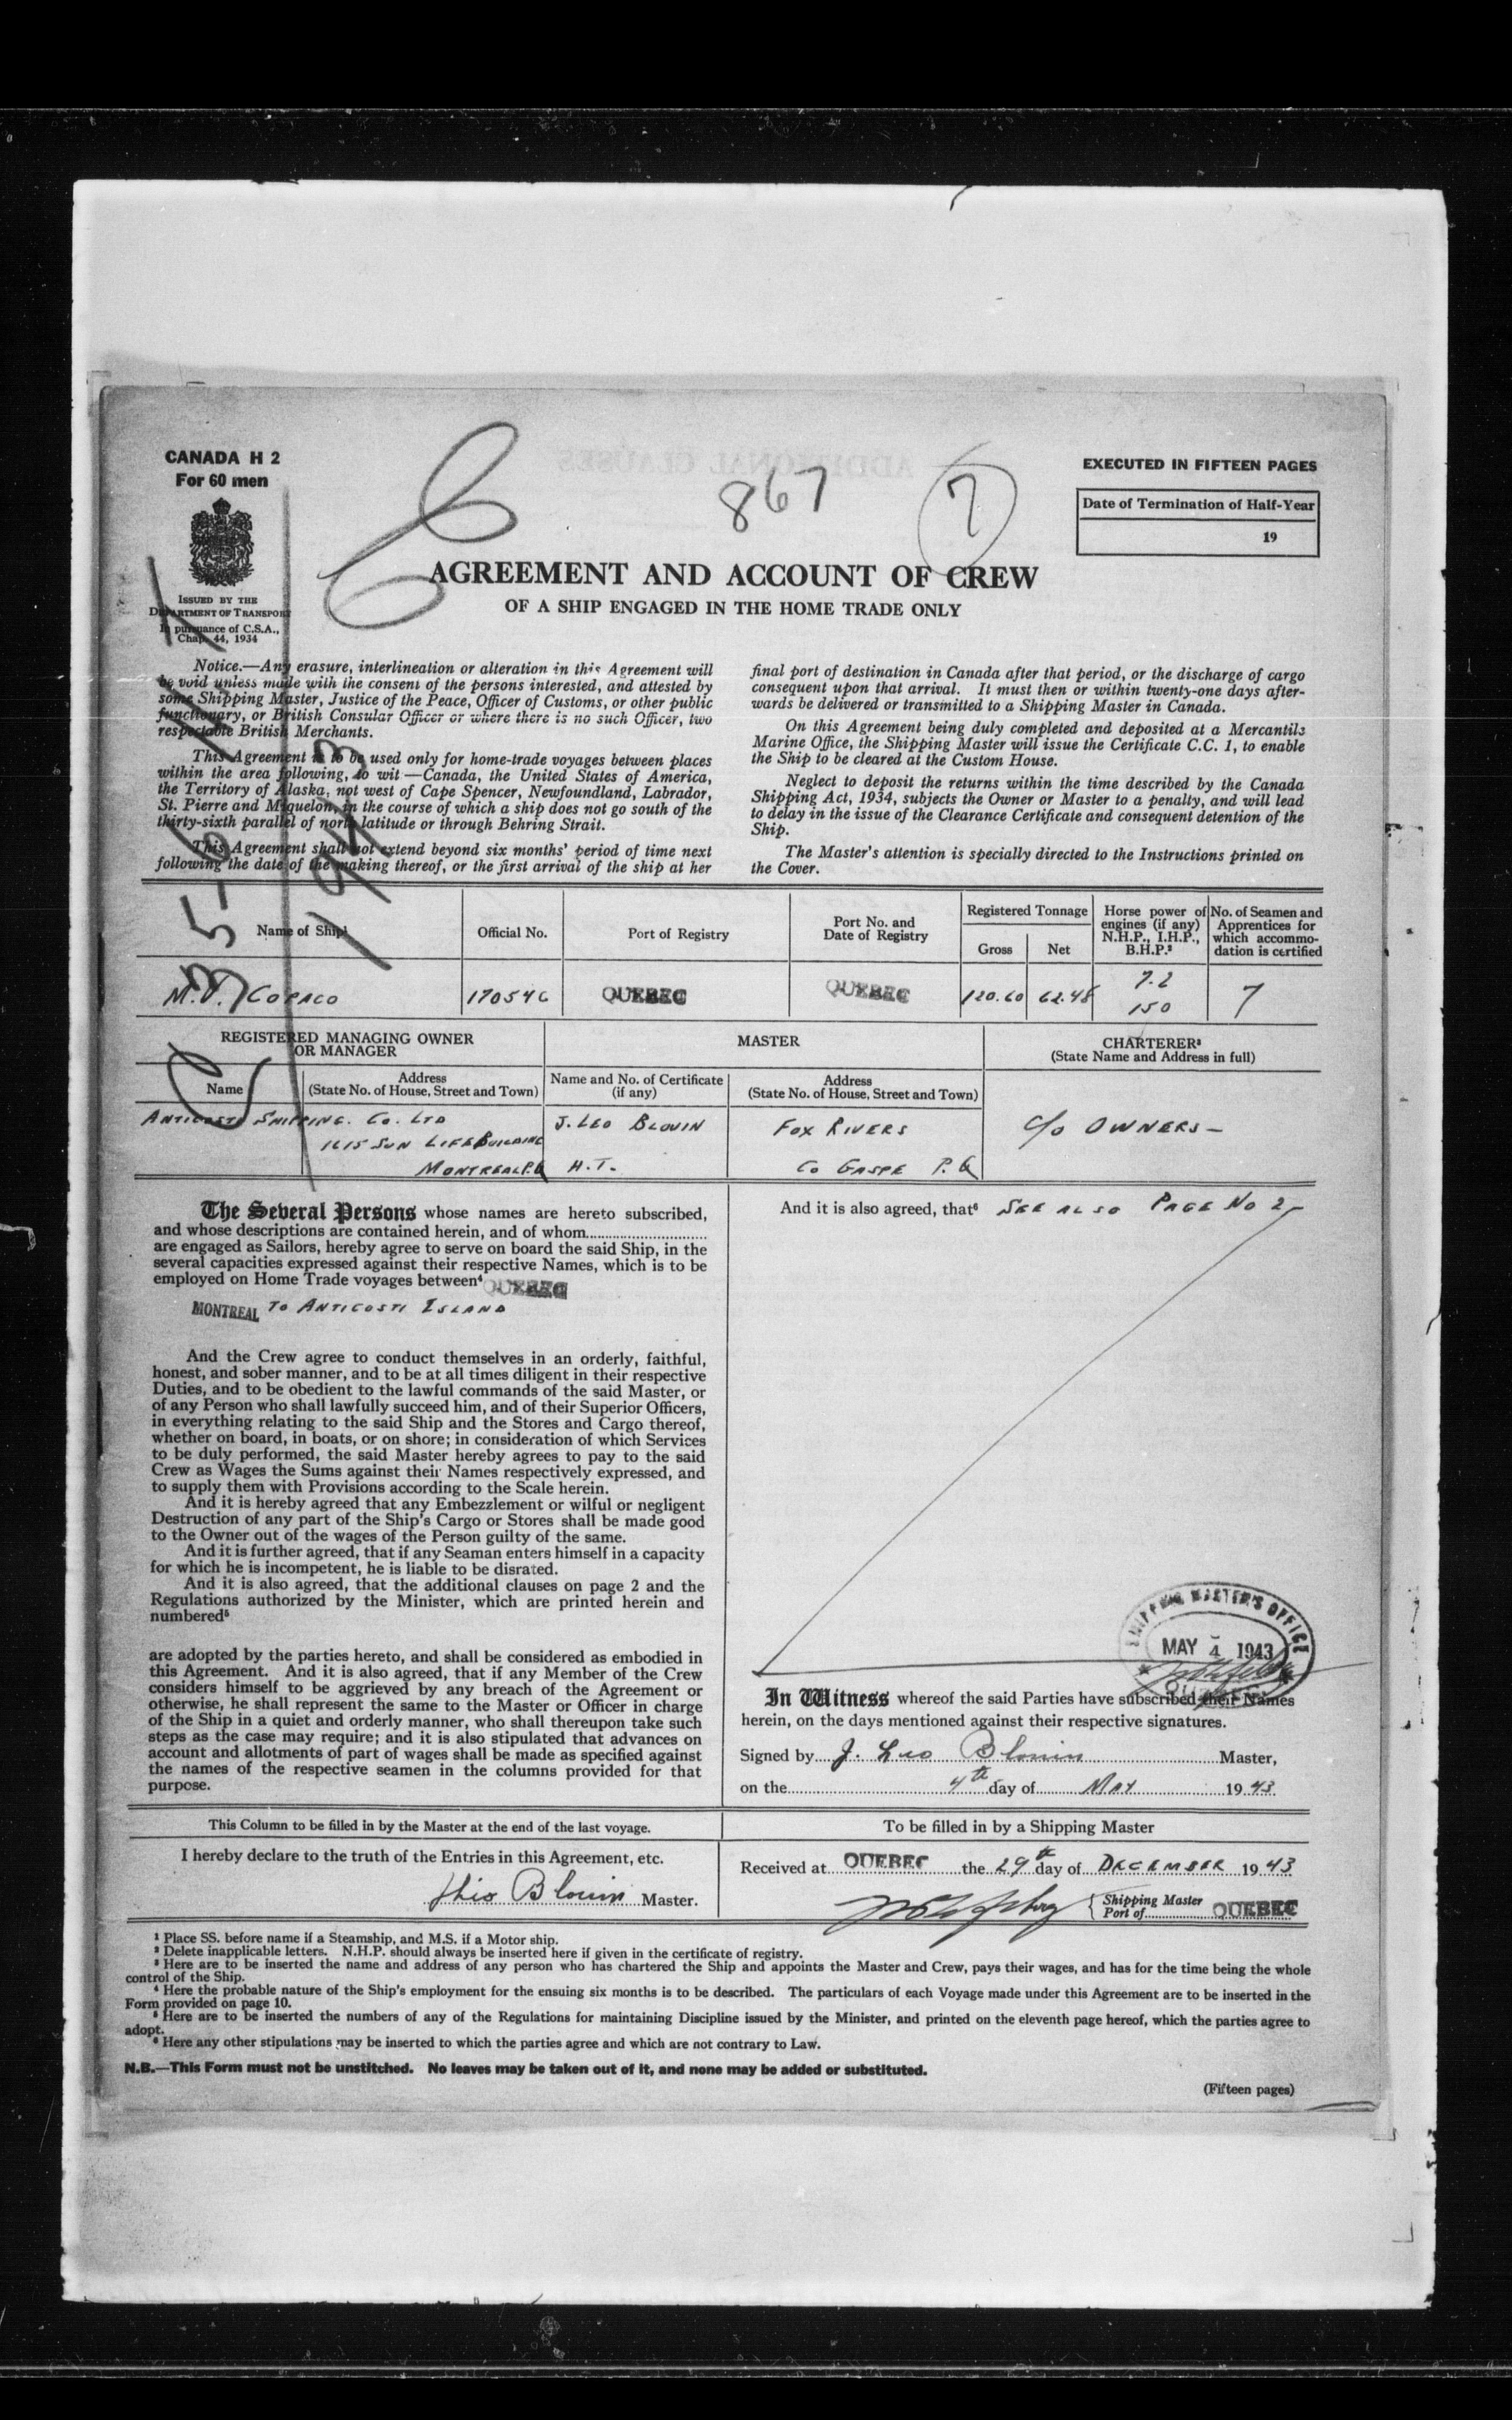 CANADA H 2
For 60 men
ISSUED BY THE
DEPARTMENT OF TRANSPORT
In pursuance of C.S.A.,
Chap. 44, 1934
867
7
EXECUTED IN FIFTEEN PAGES
Date of Termination of Half-Year
19
AGREEMENT AND ACCOUNT OF CREW
OF A SHIP ENGAGED IN THE HOME TRADE ONLY
Notice.—Any erasure, interlineation or alteration in this Agreement will
be void unless made with the consent of the persons interested, and attested by
some Shipping Master, Justice of the Peace, Officer of Customs, or other public
functionary, or British Consular Officer or where there is no such Officer, two
respectable British Merchants.
This Agreement is to be used only for home-trade voyages between places
within the area following, to wit—Canada, the United States of America,
the Territory of Alaska, not west of Cape Spencer, Newfoundland, Labrador,
St. Pierre and Miquelon, in the course of which a ship does not go south of the
thirty-sixth parallel of north latitude or through Behring Strait.
This Agreement shall not extend beyond six months' period of time next
following the date of the making thereof, or the first arrival of the ship at her
final port of destination in Canada after that period, or the discharge of cargo
consequent upon that arrival. It must then or within twenty-one days after-
wards be delivered or transmitted to a Shipping Master in Canada.
On this Agreement being duly completed and deposited at a Mercantile
Marine Office, the Shipping Master will issue the Certificate C.C. 1, to enable
the Ship to be cleared at the Custom House.
Neglect to deposit the returns within the time described by the Canada
Shipping Act, 1934, subjects the Owner or Master to a penalty, and will lead
to delay in the issue of the Clearance Certificate and consequent detention of the
Ship.
The Master's attention is specially directed to the Instructions printed on
the Cover.
1943
Name of Ship¹
Official No.
Port of Registry
Port No. and
Date of Registry
Registered Tonnage
Gross
Net
Horse power of
engines (if any)
N.H.P., I.H.P.,
B.H.P.²
No. of Seamen and
Apprentices for
which accommo-
dation is certified
M.V. COPACO
170546
QUEBEC
QUEBEC
120.60
62.48
7.2
150
7
REGISTERED MANAGING OWNER
OR MANAGER
MASTER
CHARTERER³
(State Name and Address in full)
Name
Address
(State No. of House, Street and Town)
Name and No. of Certificate
(if any)
Address
(State No. of House, Street and Town)
ANTICOSTI SHIPPING. CO. LTD
1615 SUN LIFE BUILDING
MONTREAL P.Q
J. LEO BLOUIN
H.T.
FOX RIVERS
CO GASPE P.Q
C/O OWNERS—
The Several Persons whose names are hereto subscribed,
and whose descriptions are contained herein, and of whom
are engaged as Sailors, hereby agree to serve on board the said Ship, in the
several capacities expressed against their respective Names, which is to be
employed on Home Trade voyages between⁴ QUEBEC
MONTREAL TO ANTICOSTI ISLAND
And the Crew agree to conduct themselves in an orderly, faithful,
honest, and sober manner, and to be at all times diligent in their respective
Duties, and to be obedient to the lawful commands of the said Master, or
of any Person who shall lawfully succeed him, and of their Superior Officers,
in everything relating to the said Ship and the Stores and Cargo thereof,
whether on board, in boats, or on shore; in consideration of which Services
to be duly performed, the said Master hereby agrees to pay to the said
Crew as Wages the Sums against their Names respectively expressed, and
to supply them with Provisions according to the Scale herein.
And it is hereby agreed that any Embezzlement or wilful or negligent
Destruction of any part of the Ship's Cargo or Stores shall be made good
to the Owner out of the wages of the Person guilty of the same.
And it is further agreed, that if any Seaman enters himself in a capacity
for which he is incompetent, he is liable to be disrated.
And it is also agreed, that the additional clauses on page 2 and the
Regulations authorized by the Minister, which are printed herein and
numbered⁵
are adopted by the parties hereto, and shall be considered as embodied in
this Agreement. And it is also agreed, that if any Member of the Crew
considers himself to be aggrieved by any breach of the Agreement or
otherwise, he shall represent the same to the Master or Officer in charge
of the Ship in a quiet and orderly manner, who shall thereupon take such
steps as the case may require; and it is also stipulated that advances on
account and allotments of part of wages shall be made as specified against
the names of the respective seamen in the columns provided for that
purpose.
And it is also agreed, that⁶ SEE ALSO PAGE NO 2
SHIPPING MASTER'S OFFICE
MAY 4 1943
QUEBEC
In Witness whereof the said Parties have subscribed their Names
herein, on the days mentioned against their respective signatures.
Signed by J. Leo Blouin Master,
on the 4th day of MAY 1943
This Column to be filled in by the Master at the end of the last voyage.
I hereby declare to the truth of the Entries in this Agreement, etc.
Blouin Master.
To be filled in by a Shipping Master
Received at QUEBEC the 29th day of DECEMBER 1943
Shipping Master
Port of QUEBEC
¹ Place SS. before name if a Steamship, and M.S. if a Motor ship.
² Delete inapplicable letters. N.H.P. should always be inserted here if given in the certificate of registry.
³ Here are to be inserted the name and address of any person who has chartered the Ship and appoints the Master and Crew, pays their wages, and has for the time being the whole
control of the Ship.
⁴ Here the probable nature of the Ship's employment for the ensuing six months is to be described. The particulars of each Voyage made under this Agreement are to be inserted in the
Form provided on page 10.
⁵ Here are to be inserted the numbers of any of the Regulations for maintaining Discipline issued by the Minister, and printed on the eleventh page hereof, which the parties agree to
adopt.
⁶ Here any other stipulations may be inserted to which the parties agree and which are not contrary to Law.
N.B.—This Form must not be unstitched. No leaves may be taken out of it, and none may be added or substituted.
(Fifteen pages)